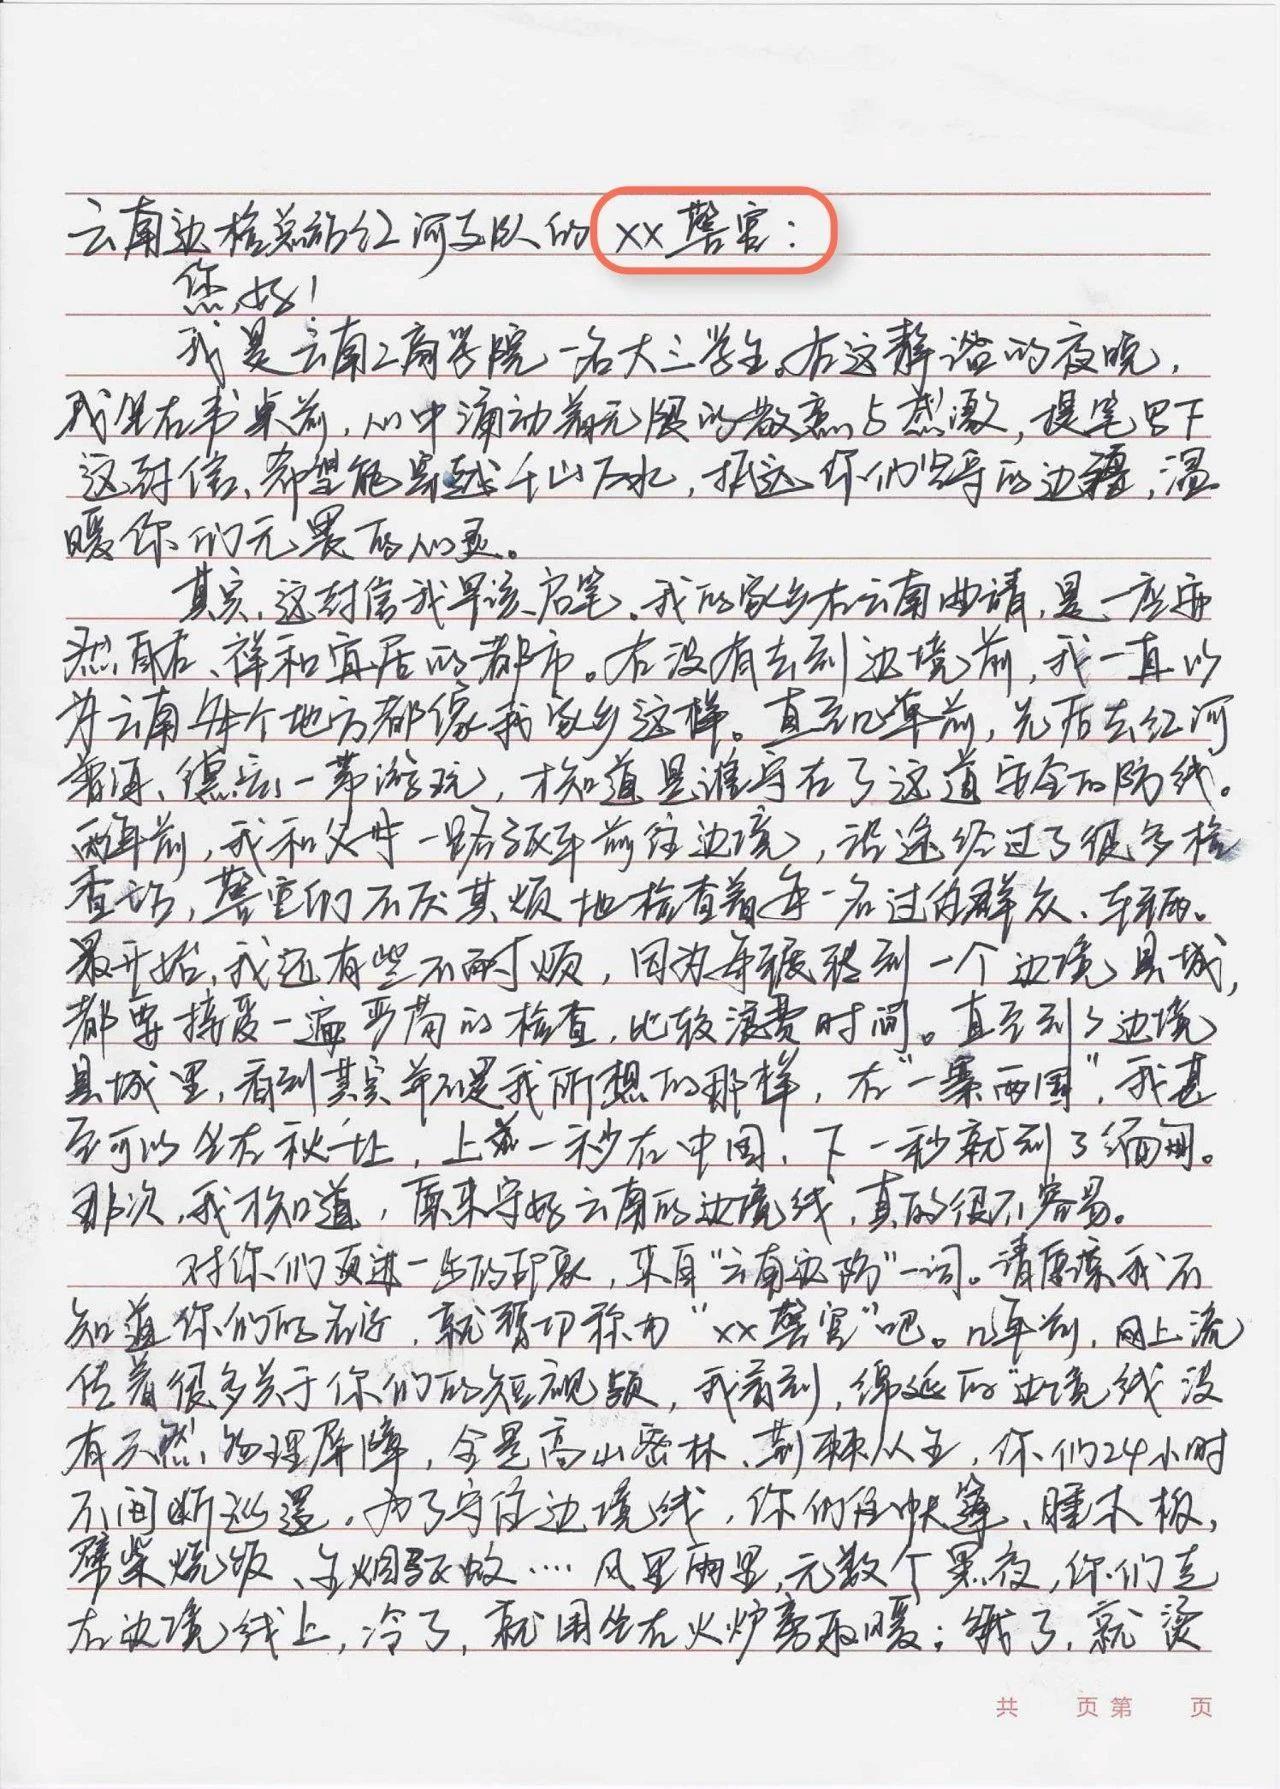 云南边检总站红河支队的xx警官：
您好！
我是云南工商学院一名大三学生。在这静谧的夜晚，
我坐在书桌前，心中涌动着无限的敬意与感激，提笔写下
这封信、希望能穿越千山万水，抵达你们坚守的边疆，温
暖你们无畏的心灵。
其实，这封信我早该启笔。我的家乡在云南曲靖，是一座安
然自在、祥和宜居的都市。在没有去到边境前，我一直以
为云南每个地方都像我家乡这样。直至几年前，先后去红河
普洱、德宏一带游玩，才知道是谁守在了这道安全的防线。
两年前，我和父母一路驱车前往边境，沿途经过了很多检
查站，警官们不厌其烦地检查着每一名过往群众、车辆。
最开始，我还有些不耐烦，因为每辗转到一个边境县城，
都要接受一遍严苛的检查，比较浪费时间。直至到了边境
县城里，看到其实并不是我所想的那样，在“一寨两国”，我甚
至可以坐在秋千上，上一秒在中国，下一秒就到了缅甸。
那次，我才知道，原来守好云南的边境线，真的很不容易。
对你们更进一步的印象，来自“云南边防”一词。请原谅我不
知道你们的名字，就暂切称为“xx警官”吧。几年前，网上流
传着很多关于你们的短视频，我看到，绵延的边境线没
有天然物理屏障，全是高山密林、荆棘丛生，你们24小时
不间断巡逻。为了守住边境线，你们住帐篷、睡木板，
劈柴烧饭、生烟驱蚊……风里雨里，无数个黑夜，你们走
在边境线上，冷了，就围坐在火炉旁取暖；饿了，就烫
共 页 第 页